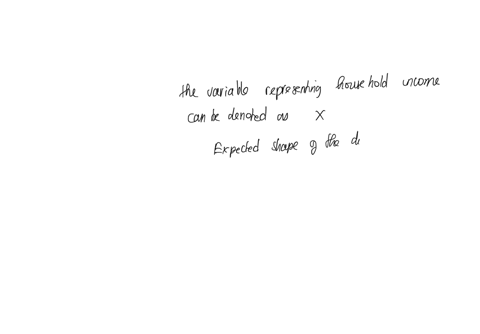 the variable representing household income
can be denoted as X
Expected shape of the d